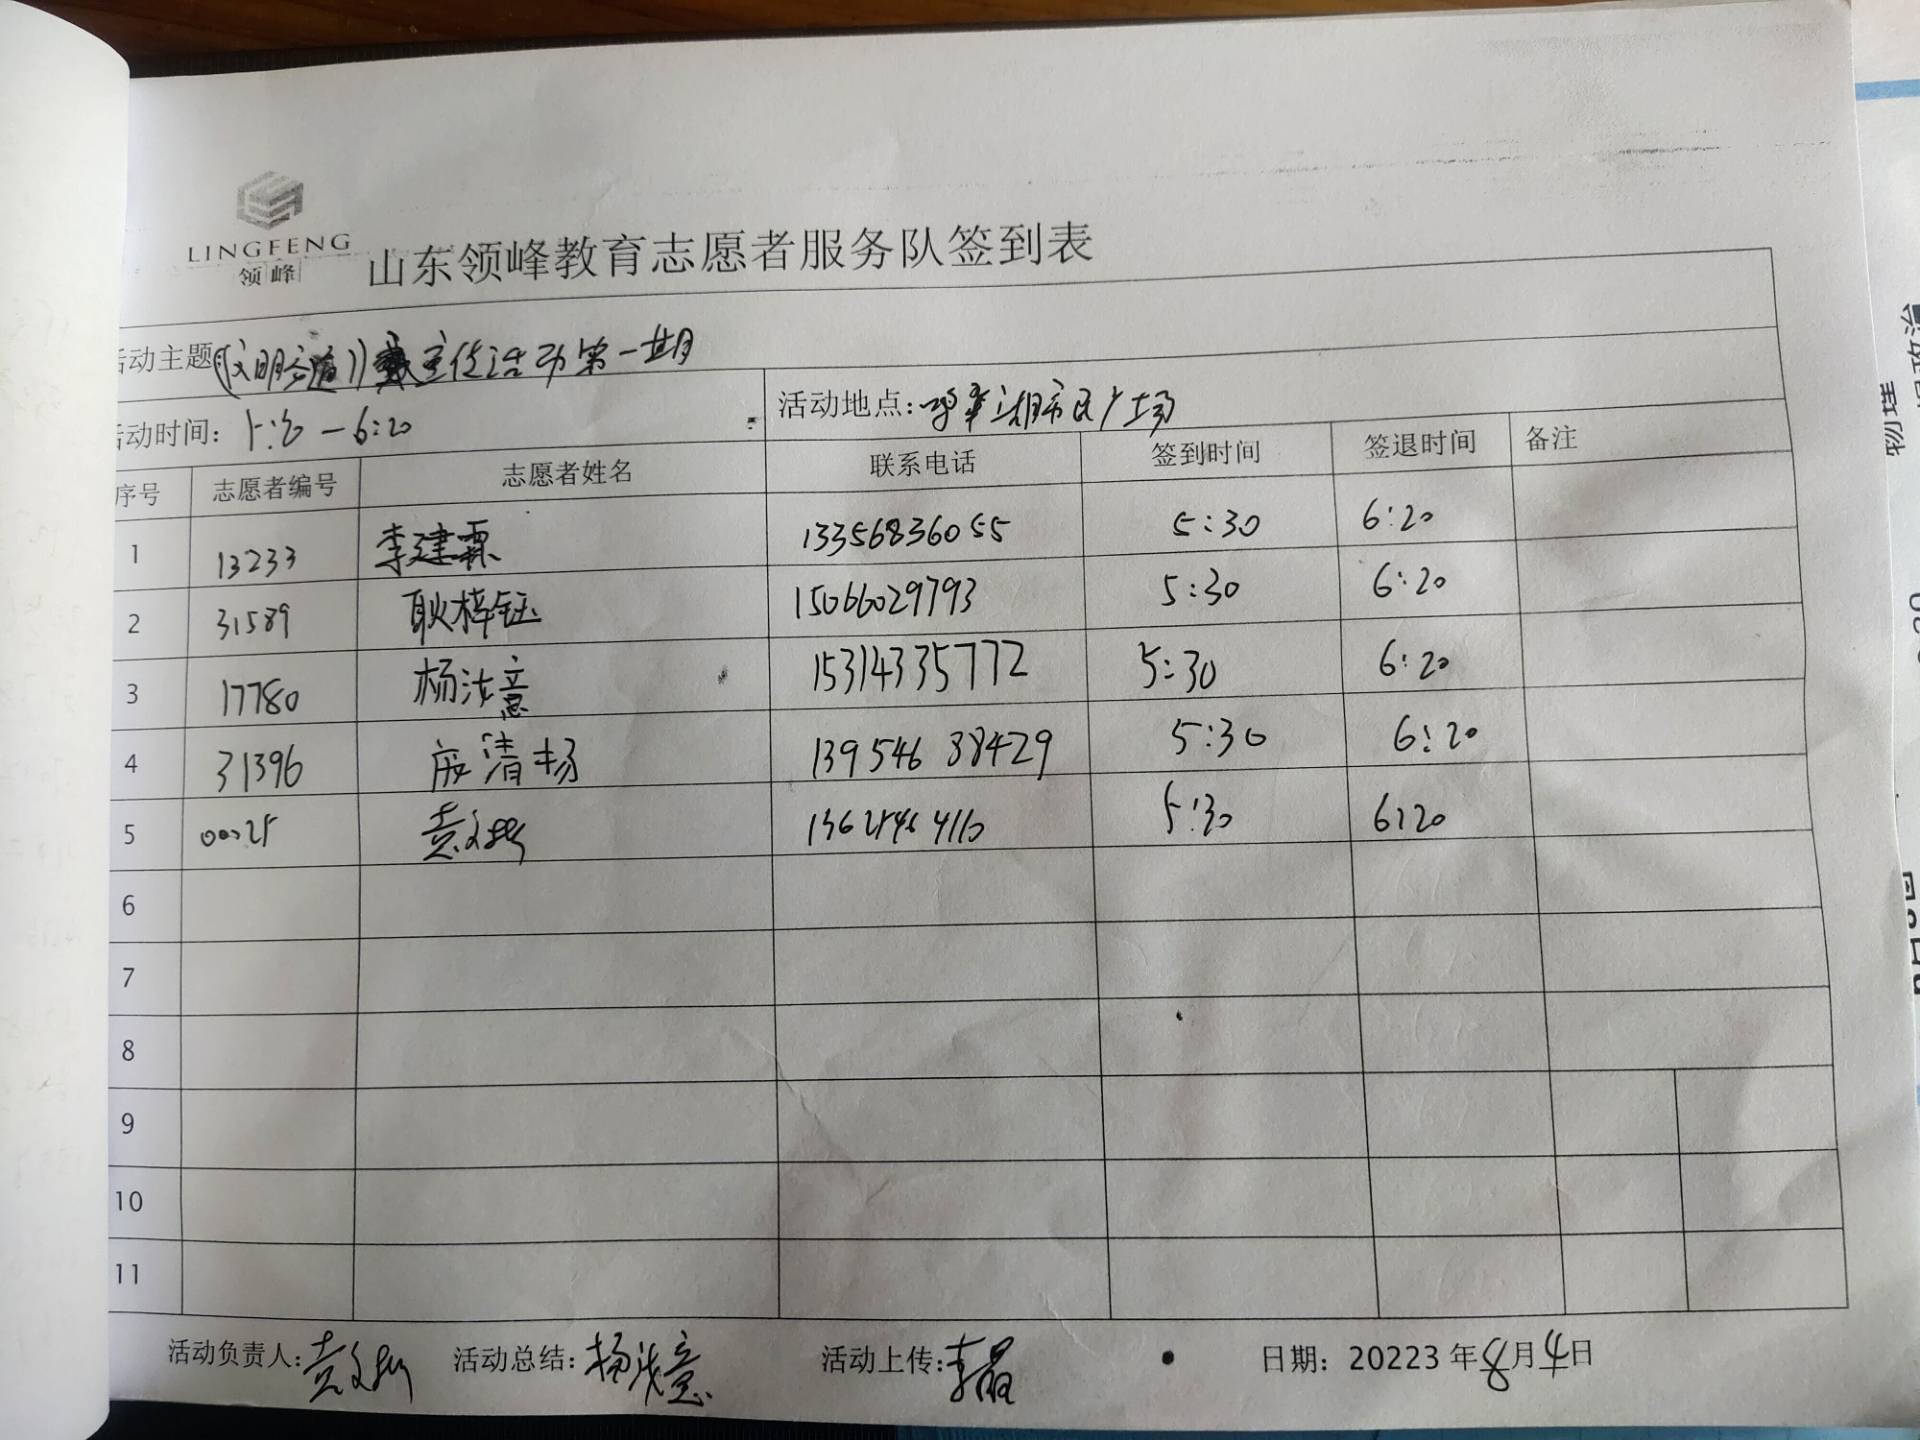 LINGFENG
领峰
山东领峰教育志愿者服务队签到表
活动主题:《文明交通》宣传活动第一期
活动时间: —6:20
活动地点: 湖市民广场
序号 志愿者编号 志愿者姓名 联系电话 签到时间 签退时间 备注
1 13233 李建霖 13356836055 5:30 6:20
2 31589 耿梓钰 15066029793 5:30 6:20
3 17780 杨汝意 15314335772 5:30 6:20
4 31396 庞清扬 13954638429 5:30 6:20
5 00025 袁 13621464110 5:30 6:20
6
7
8
9
10
11
活动负责人:袁 活动总结:杨汝意 活动上传:李晶 日期: 20223 年8月 日
物理